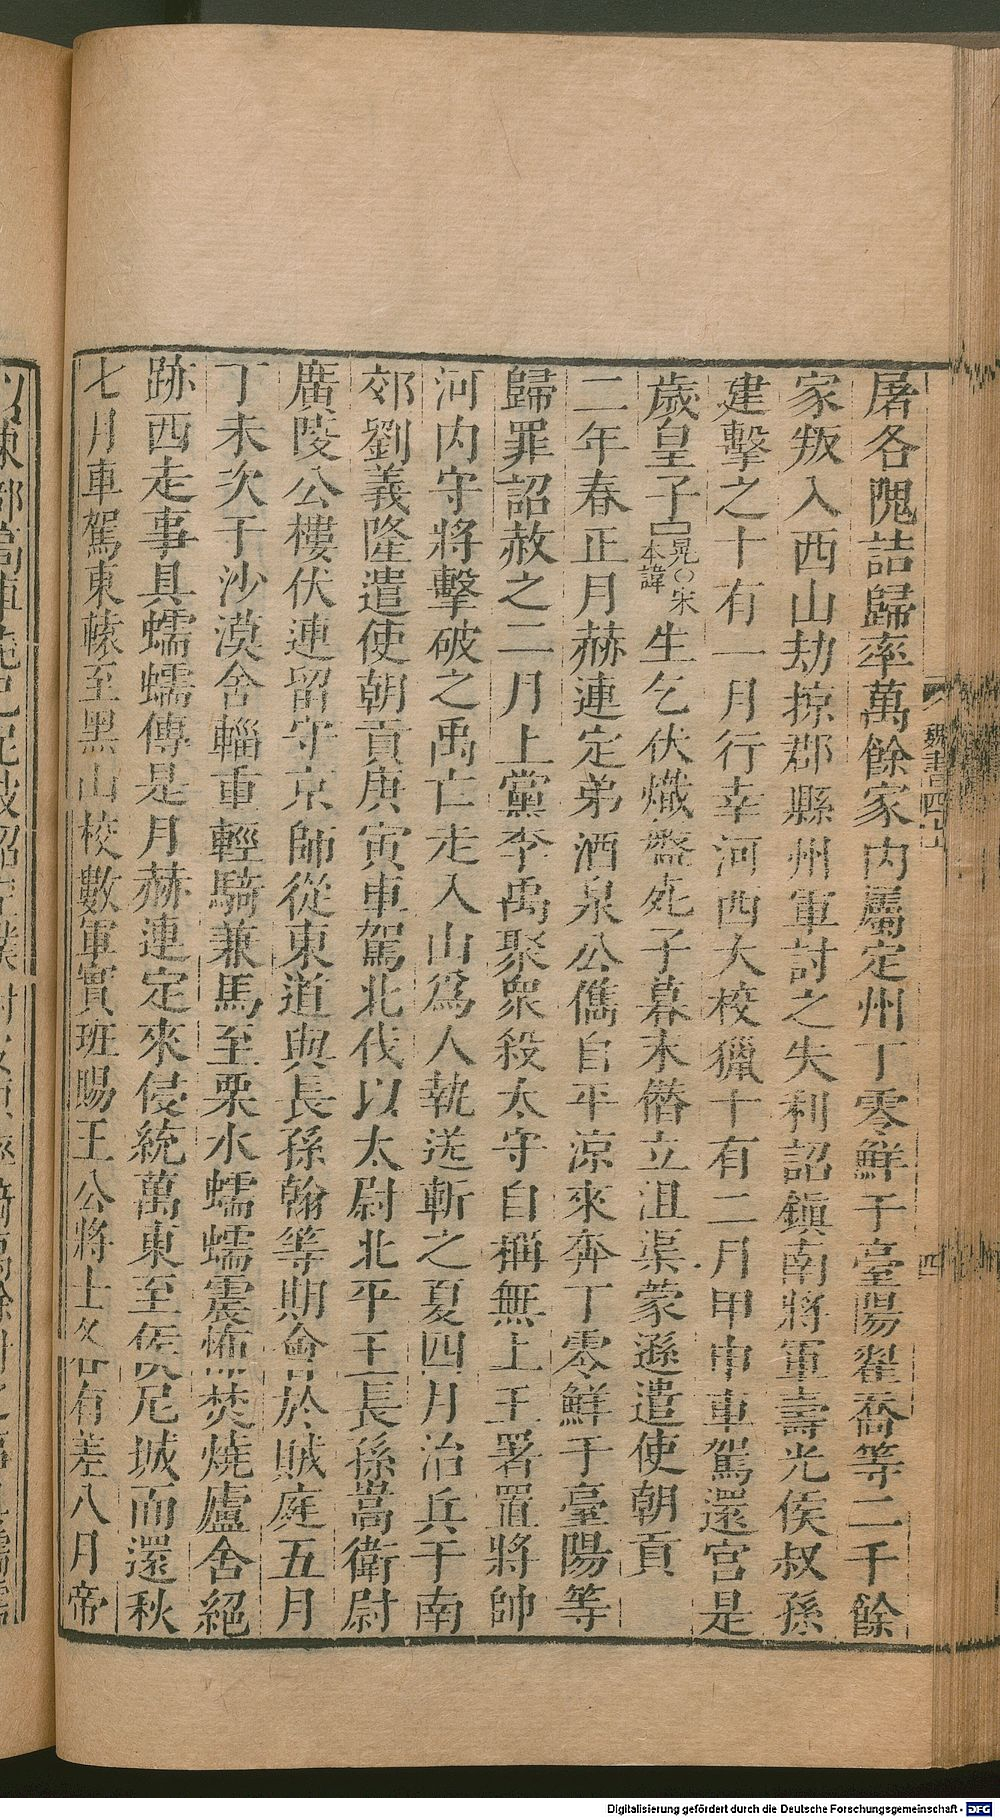 屠各隗詰歸率萬餘家內屬定州丁零鮮于臺陽翟喬等二千餘
家叛入西山劫掠郡縣州軍討之失利詔鎮南將軍壽光侯叔孫
建擊之十有一月行幸河西大校獵十有二月甲申車駕還宮是
歲皇子晃○宋本諱生乞伏熾盤死子暮末僭立沮渠蒙遜遣使朝貢
二年春正月赫連定弟酒泉公儁自平涼來奔丁零鮮于臺陽等
歸罪詔赦之二月上黨李禹聚衆殺太守自稱無上王署置將帥
河內守將擊破之禹亡走入山爲人執送斬之夏四月治兵于南
郊劉義隆遣使朝貢庚寅車駕北伐以太尉北平王長孫嵩衛尉
廣陵公樓伏連留守京師從東道與長孫翰等期會於賊庭五月
丁未次于沙漠舍輜重輕騎兼馬至栗水蠕蠕震怖焚燒廬舍絕
跡西走事具蠕蠕傳是月赫連定來侵統萬東至侯尼城而還秋
七月車駕東轅至黑山校數軍實班賜王公將士各有差八月帝
魏書四上
四
Digitalisierung gefördert durch die Deutsche Forschungsgemeinschaft - DFG